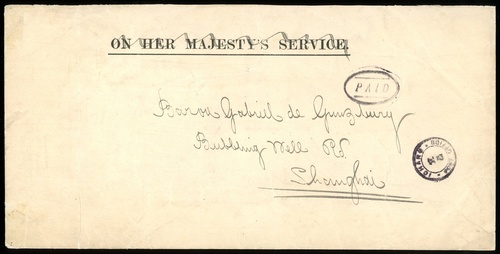 ON HER MAJESTY'S SERVICE.
PAID
Baron Gabriel de Gunzburg
Bubbling Well Rd.
Shanghai
ICHANG